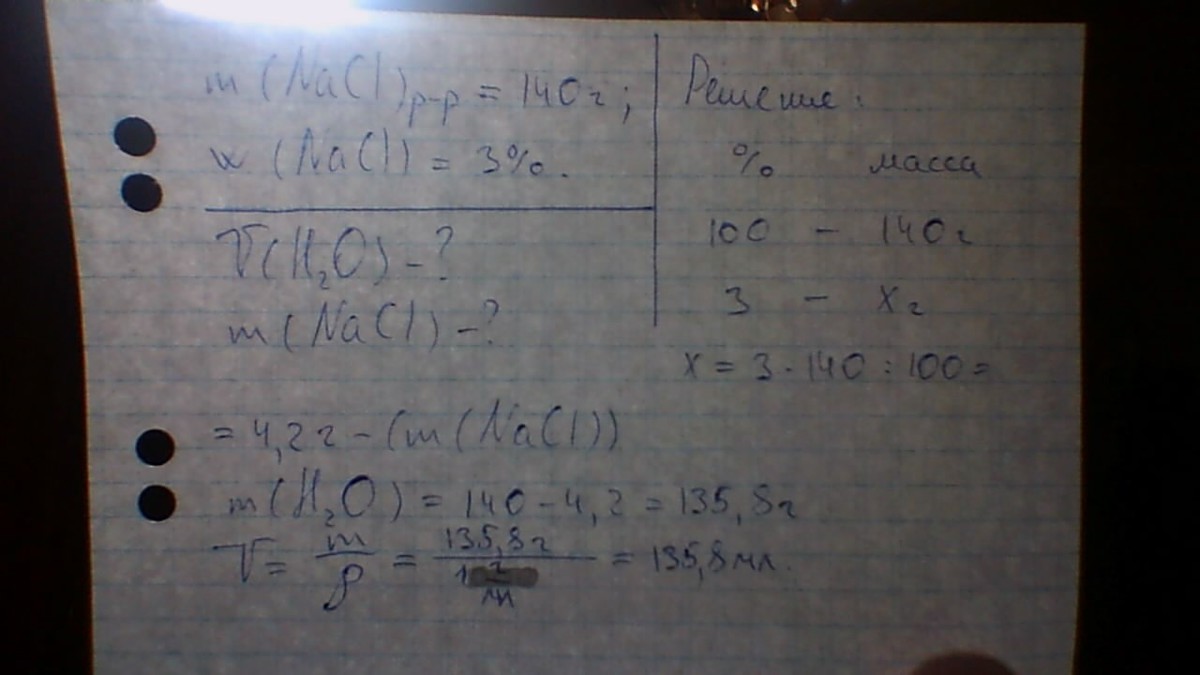 m (NaCl)р-р = 140г;
w (NaCl) = 3%.
V(H₂O) - ?
m (NaCl) - ?
Решение:
% масса
100 - 140г
3 - Xг
X = 3 · 140 : 100 =
= 4,2г - (m (NaCl))
m(H₂O) = 140 - 4,2 = 135,8г
V = m/ρ = 135,8г / 1 г/мл = 135,8мл.